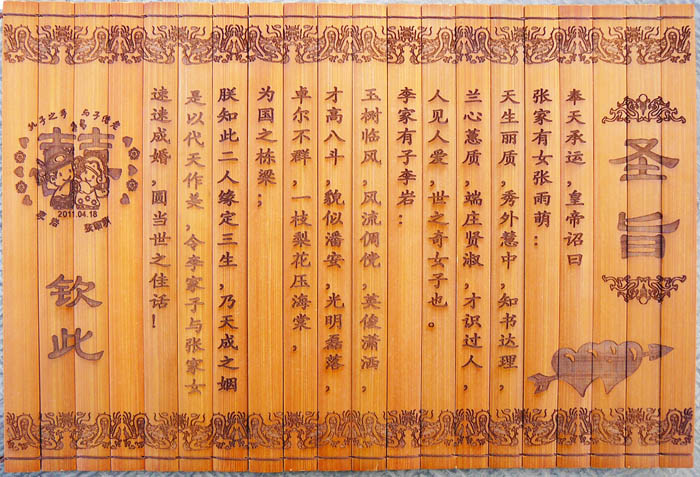 圣旨
奉天承运，皇帝诏曰
张家有女张雨萌：
天生丽质，秀外慧中，知书达理，
兰心蕙质，端庄贤淑，才识过人，
人见人爱，世之奇女子也。
李家有子李岩：
玉树临风，风流倜傥，英俊潇洒，
才高八斗，貌似潘安，光明磊落，
卓尔不群，一枝梨花压海棠，
为国之栋梁；
朕知此二人缘定三生，乃天成之姻
是以代天作美，令李家子与张家女
速速成婚，圆当世之佳话！
执子之手 与子偕老
囍
2011.04.18
钦此